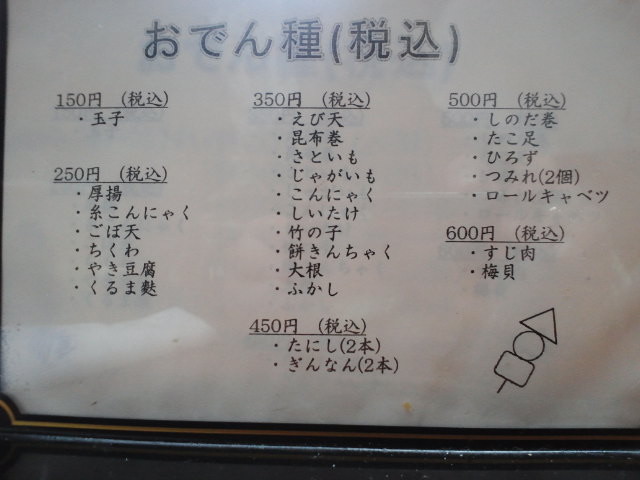 おでん種(税込)
150円　(税込)
・玉子
250円　(税込)
・厚揚
・糸こんにゃく
・ごぼ天
・ちくわ
・やき豆腐
・くるま麩
350円　(税込)
・えび天
・昆布巻
・さといも
・じゃがいも
・こんにゃく
・しいたけ
・竹の子
・餅きんちゃく
・大根
・ふかし
450円　(税込)
・たにし(2本)
・ぎんなん(2本)
500円　(税込)
・しのだ巻
・たこ足
・ひろず
・つみれ(2個)
・ロールキャベツ
600円　(税込)
・すじ肉
・梅貝